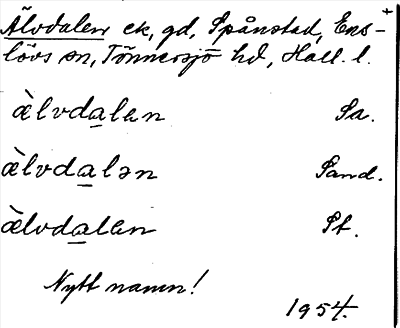 Älvdalen ek, gd, Spånstad, Ens-
lövs sn, Tönnersjö hd, Hall. l.
àlvdalen Sa.
àlvdalən Sand.
àlvdalen St.
Nytt namn!
1954.